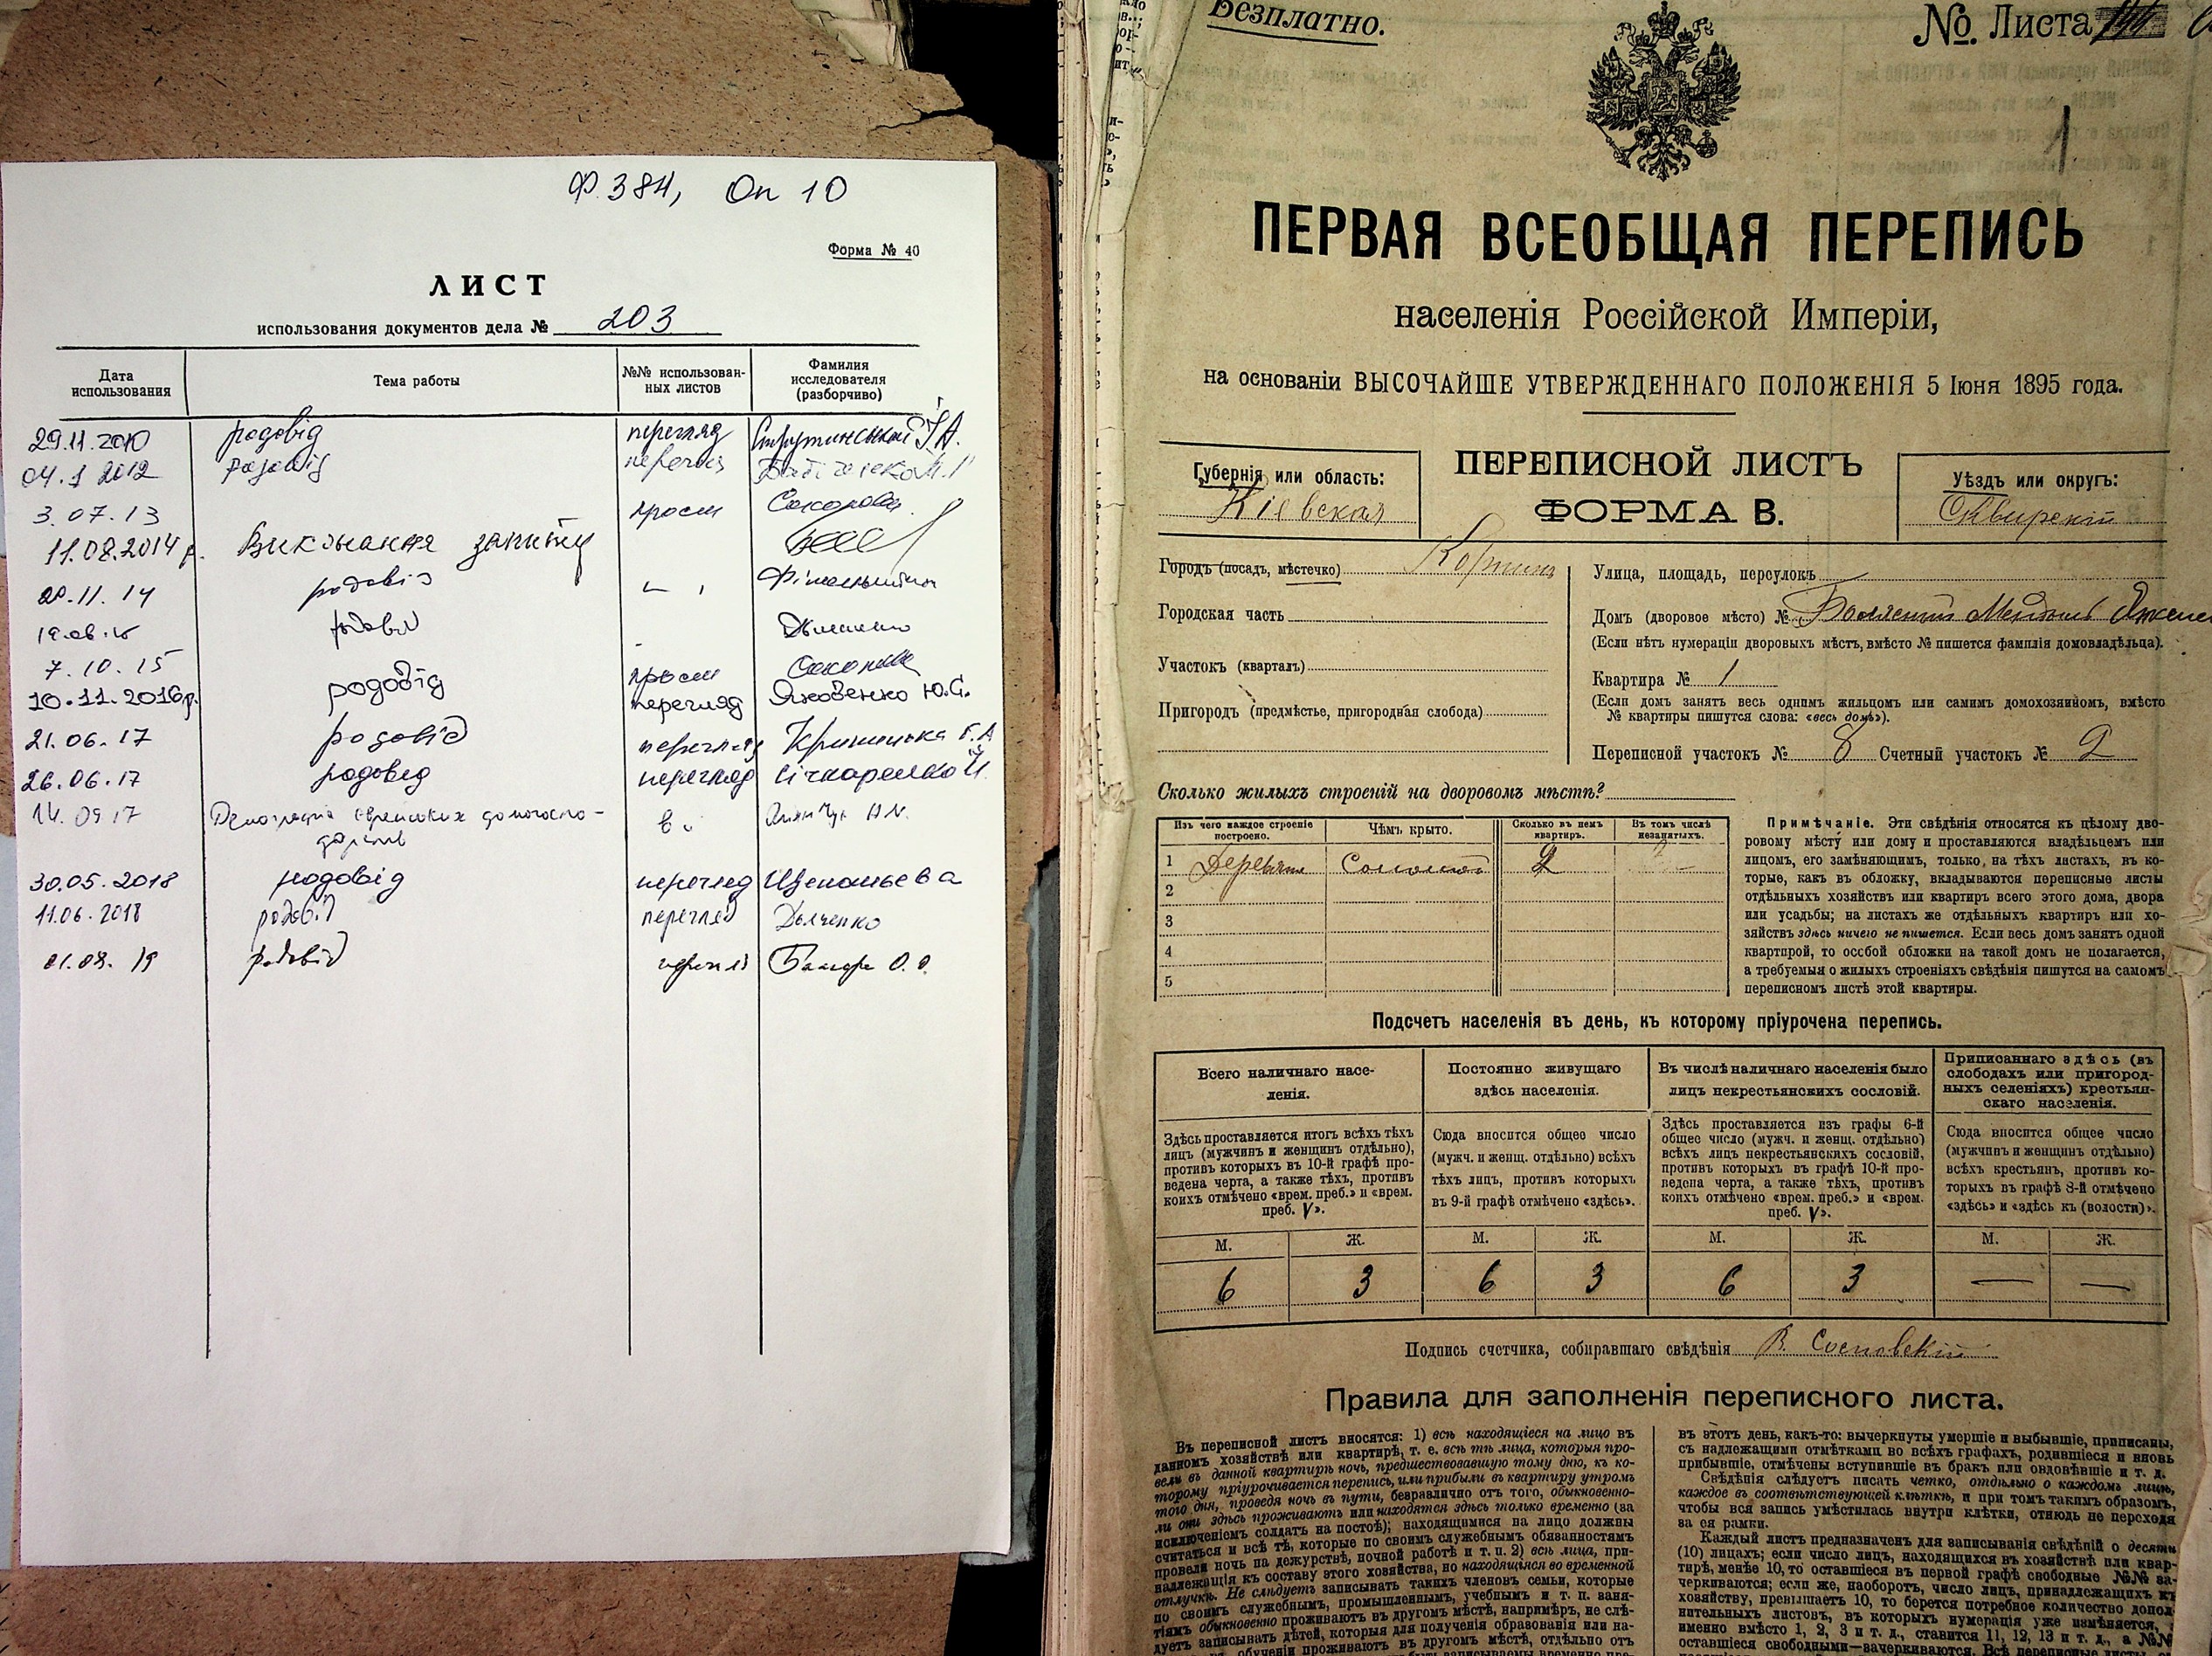 Ф. 384, Оп 10
Форма № 40
ЛИСТ
использования документов дела № 203
Дата использования
Тема работы
№№ использован-
ных листов
Фамилия
исследователя
(разборчиво)
29.11.2010 родовід перегляд
04.1 2012 родовід
3.07.13
11.08.2014 р. Виконання запиту
20.11.14 родовід
родовід
7.10.15
10.11.2016р. родовід перегляд Яковенко Ю.С.
21.06.17 родовід перегляд
26.06.17 родовед перегляд Січкаренко
14.09 17 єврейських домогоспо-
дарств
30.05.2018 родовід перегляд
11.06.2018 родовід перегляд
01.08.19 родовід О.О.
Безплатно.
№. Листа
1
ПЕРВАЯ ВСЕОБЩАЯ ПЕРЕПИСЬ
населенія Россійской Имперіи,
на основаніи ВЫСОЧАЙШЕ УТВЕРЖДЕННАГО ПОЛОЖЕНІЯ 5 Іюня 1895 года.
Губернія или область:
Кіевская
ПЕРЕПИСНОЙ ЛИСТЪ
ФОРМА В.
Уѣздъ или округъ:
Сквирскій
Городъ (посадъ, мѣстечко)
Городская часть
Участокъ (кварталъ)
Пригородъ (предмѣстье, пригородная слобода)
Улица, площадь, переулокъ
Домъ (дворовое мѣсто) №
(Если нѣтъ нумераціи дворовыхъ мѣстъ, вмѣсто № пишется фамилія домовладѣльца).
Квартира № 1
(Если домъ занятъ весь однимъ жильцомъ или самимъ домохозяиномъ, вмѣсто
№ квартиры пишутся слова: «весь домъ»).
Переписной участокъ № 8 Счетный участокъ № 2
Сколько жилыхъ строеній на дворовомъ мѣстѣ?
Изъ чего каждое строеніе
построено.
Чѣмъ крыто.
Сколько въ немъ
квартиръ.
Въ томъ числѣ
незанятыхъ.
1 Соломой 2 —
2
3
4
5
Примѣчаніе. Эти свѣдѣнія относятся къ цѣлому дво-
ровому мѣсту или дому и проставляются владѣльцемъ или
лицомъ, его замѣняющимъ, только, на тѣхъ листахъ, въ ко-
торые, какъ въ обложку, вкладываются переписные листы
отдѣльныхъ хозяйствъ или квартиръ всего этого дома, двора
или усадьбы; на листахъ же отдѣльныхъ квартиръ или хо-
зяйствъ здѣсь ничего не пишется. Если весь домъ занятъ одной
квартирой, то особой обложки на такой домъ не полагается,
а требуемыя о жилыхъ строеніяхъ свѣдѣнія пишутся на самомъ
переписномъ листѣ этой квартиры.
Подсчетъ населенія въ день, къ которому пріурочена перепись.
Всего наличнаго насе-
ленія.
Здѣсь проставляется итогъ всѣхъ тѣхъ
лицъ (мужчинъ и женщинъ отдѣльно),
противъ которыхъ въ 10-й графѣ про-
ведена черта, а также тѣхъ, противъ
коихъ отмѣчено «врем. преб.» и «врем.
преб. V».
Постоянно живущаго
здѣсь населенія.
Сюда вносится общее число
(мужч. и женщ. отдѣльно) всѣхъ
тѣхъ лицъ, противъ которыхъ
въ 9-й графѣ отмѣчено «здѣсь».
Въ числѣ наличнаго населенія было
лицъ некрестьянскихъ сословій.
Здѣсь проставляется изъ графы 6-й
общее число (мужч. и женщ. отдѣльно)
всѣхъ лицъ некрестьянскихъ сословій,
противъ которыхъ въ графѣ 10-й про-
ведена черта, а также тѣхъ, противъ
коихъ отмѣчено «врем. преб.» и «врем.
преб. V».
Приписаннаго здѣсь (въ
слободахъ или пригород-
ныхъ селеніяхъ) крестьян-
скаго населенія.
Сюда вносится общее число
(мужчинъ и женщинъ отдѣльно)
всѣхъ крестьян, противъ ко-
торыхъ въ графѣ 8-й отмѣчено
«здѣсь» и «здѣсь къ (волости)».
М. Ж. М. Ж. М. Ж. М. Ж.
6 3 6 3 6 3 — —
Подпись счетчика, собиравшаго свѣдѣнія В. Сосновскій
Правила для заполненія переписного листа.
Въ переписной листъ вносятся: 1) всѣ находящіеся на лицо въ
данномъ хозяйствѣ или квартирѣ, т. е. всѣ тѣ лица, которыя про-
вели въ данной квартирѣ ночь, предшествовавшую тому дню, къ ко-
торому пріурочивается перепись, или прибыли въ квартиру утромъ
того дня, проведя ночь въ пути, безразлично отъ того, обыкновенно-
ли они здѣсь проживаютъ или находятся здѣсь только временно (за
исключеніемъ солдатъ на постоѣ); находящимися на лицо должны
считаться и всѣ тѣ, которые по своимъ служебнымъ обязанностямъ
провели ночь на дежурствѣ, ночной работѣ и т. п. 2) всѣ лица, при-
надлежащія къ составу этого хозяйства, но находящіяся во временной
отлучкѣ. Не слѣдуетъ записывать такихъ членовъ семьи, которые
по своимъ служебнымъ, промышленнымъ, учебнымъ и т. п. заня-
тіямъ обыкновенно проживаютъ въ другомъ мѣстѣ, напримѣръ, не слѣ-
дуетъ записывать дѣтей, которыя для полученія образованія или на-
обученіи проживаютъ въ другомъ мѣстѣ, отдѣльно отъ
въ этотъ день, какъ-то: вычеркнуты умершіе и выбывшіе, приписаны,
съ надлежащими отмѣтками во всѣхъ графахъ, родившіеся и вновь
прибывшіе, отмѣчены вступившіе въ бракъ или овдовѣвшіе и т. д.
Свѣдѣнія слѣдуетъ писать четко, отдѣльно о каждомъ лицѣ,
каждое въ соотвѣтствующей клѣткѣ, и при томъ такимъ образомъ,
чтобы вся запись умѣстилась внутри клѣтки, отнюдь не переходя
за ея рамки.
Каждый листъ предназначенъ для записыванія свѣдѣній о десяти
(10) лицахъ; если число лицъ, находящихся въ хозяйствѣ или квар-
тирѣ, менѣе 10, то оставшіеся въ первой графѣ свободные №№ за-
черкиваются; если же, наоборотъ, число лицъ, принадлежащихъ къ
хозяйству, превышаетъ 10, то берется потребное количество допол-
нительныхъ листовъ, въ которыхъ нумерація уже измѣняется,
именно вмѣсто 1, 2, 3 и т. д., ставится 11, 12, 13 и т. д., а №№
оставшіеся свободными—зачеркиваются. Всѣ переписные листы